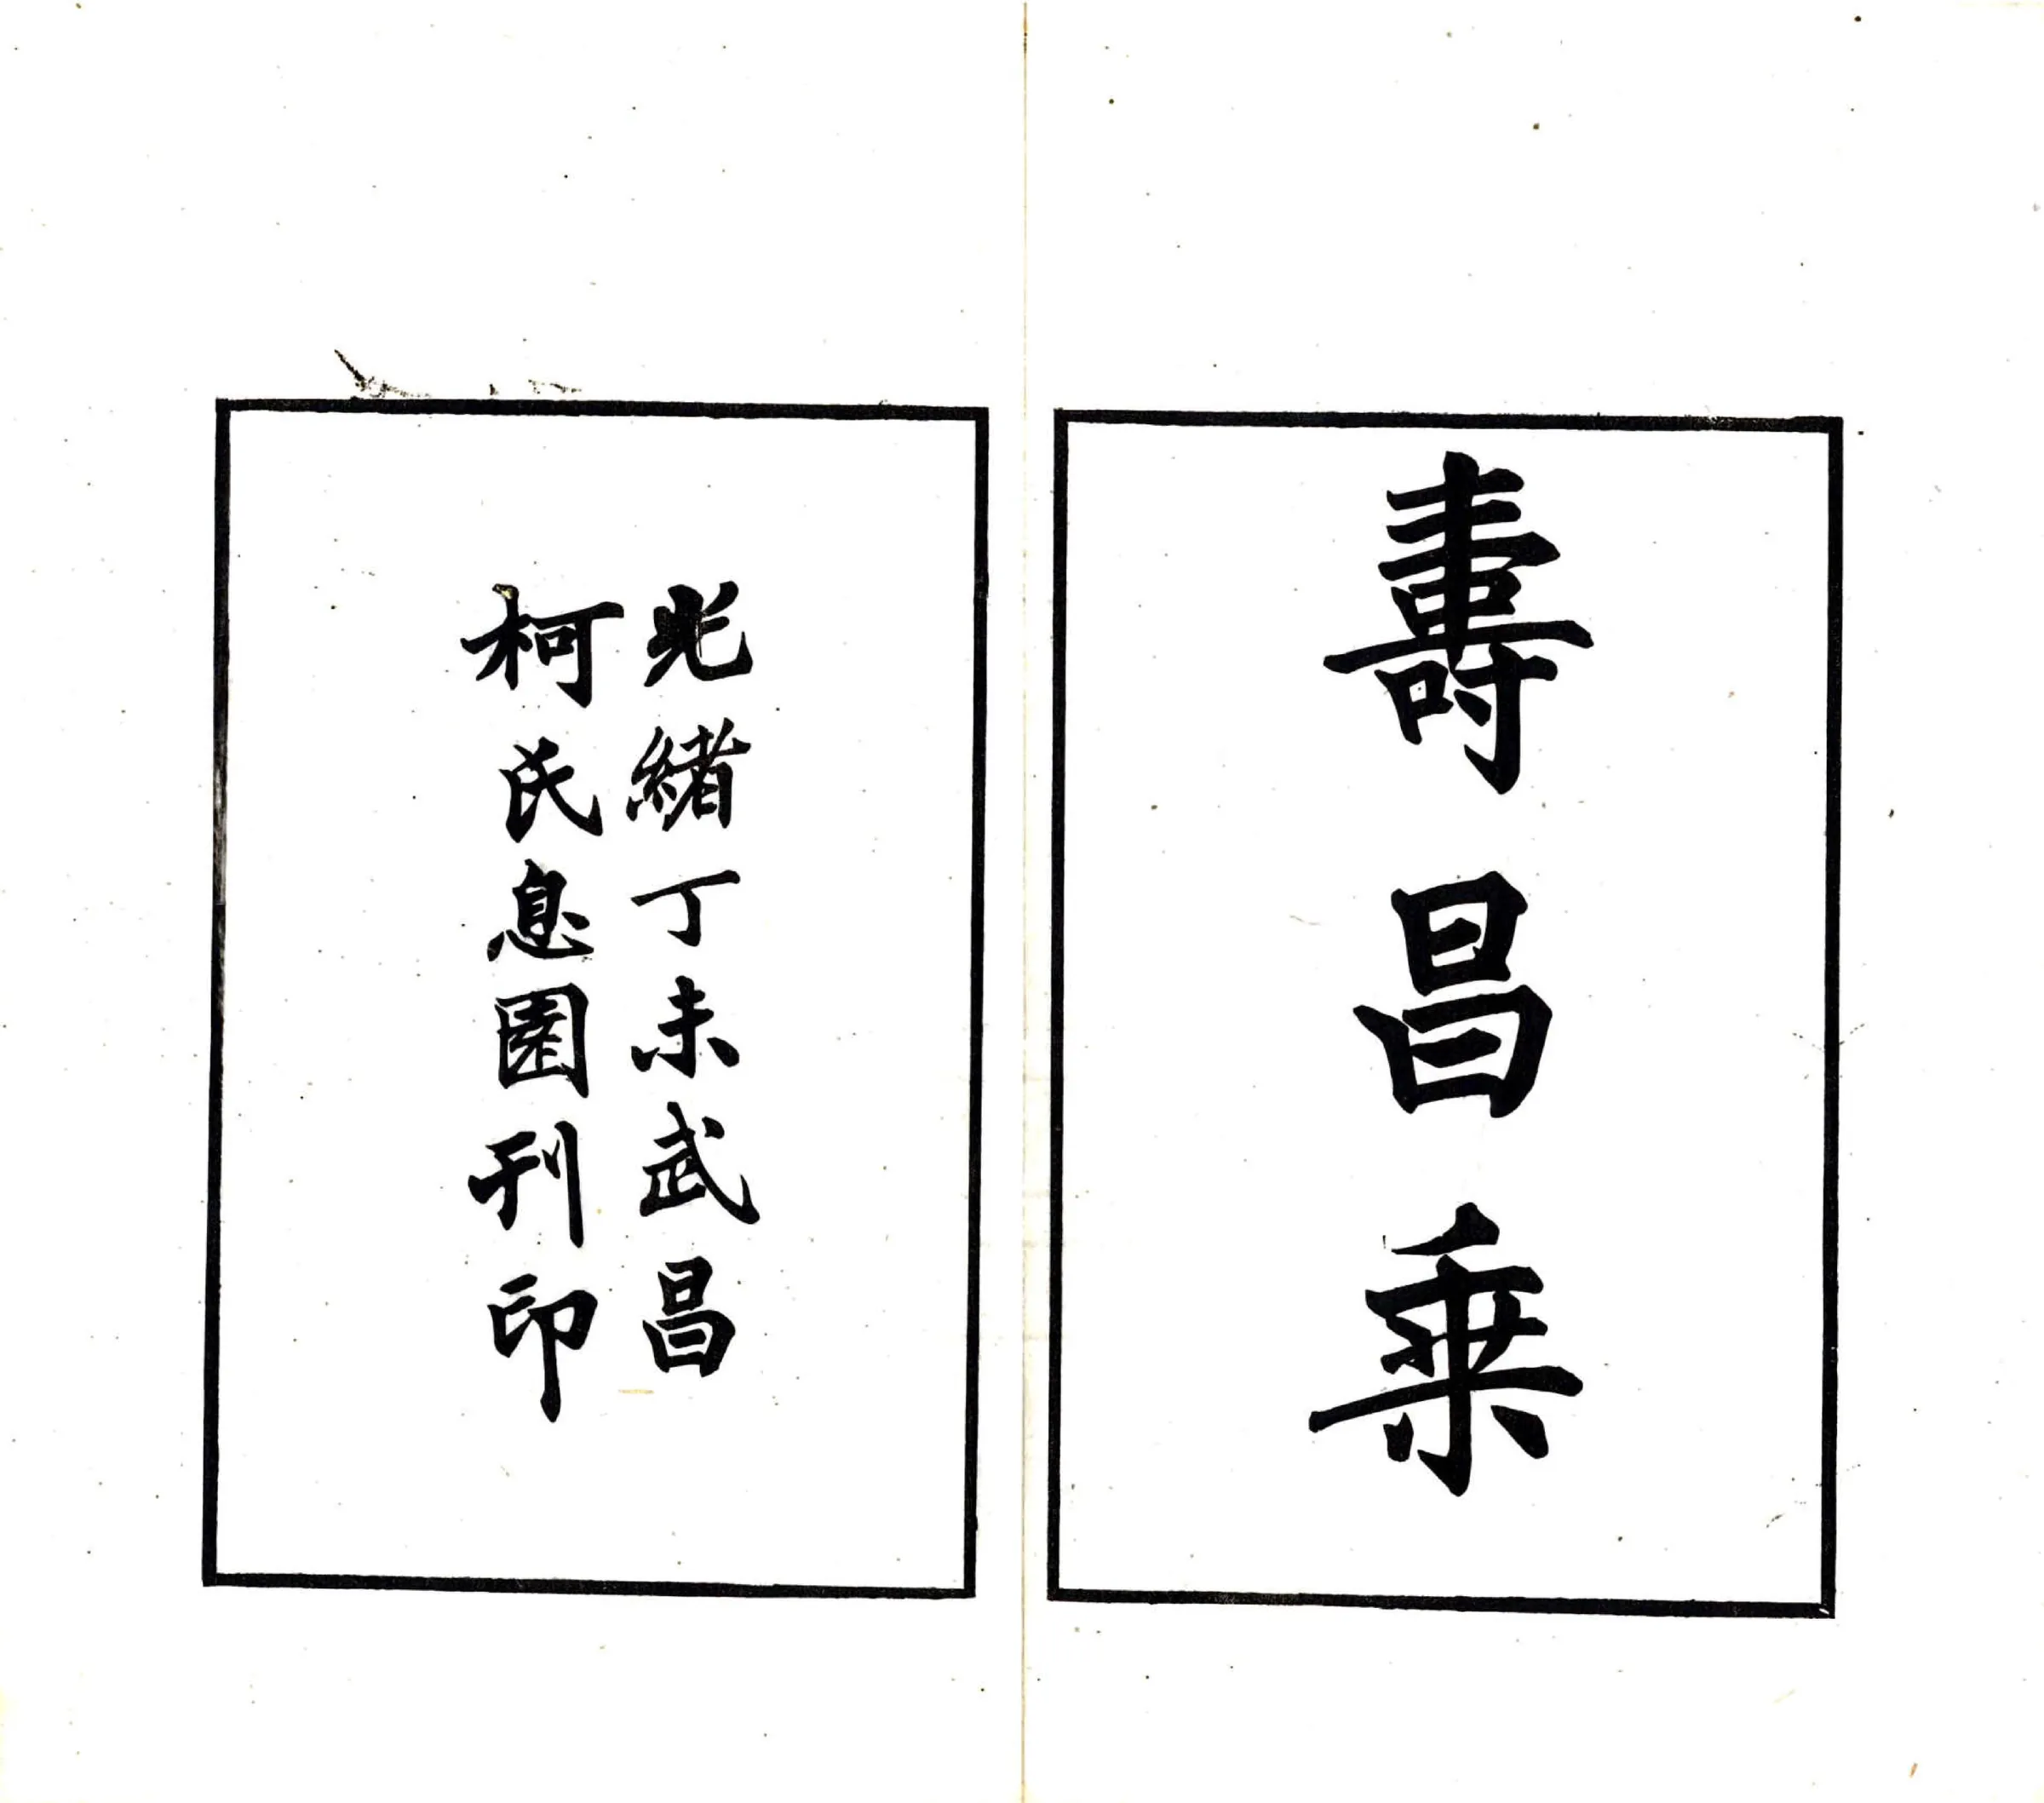 壽昌乗
光緒丁未武昌
柯氏息園刊印